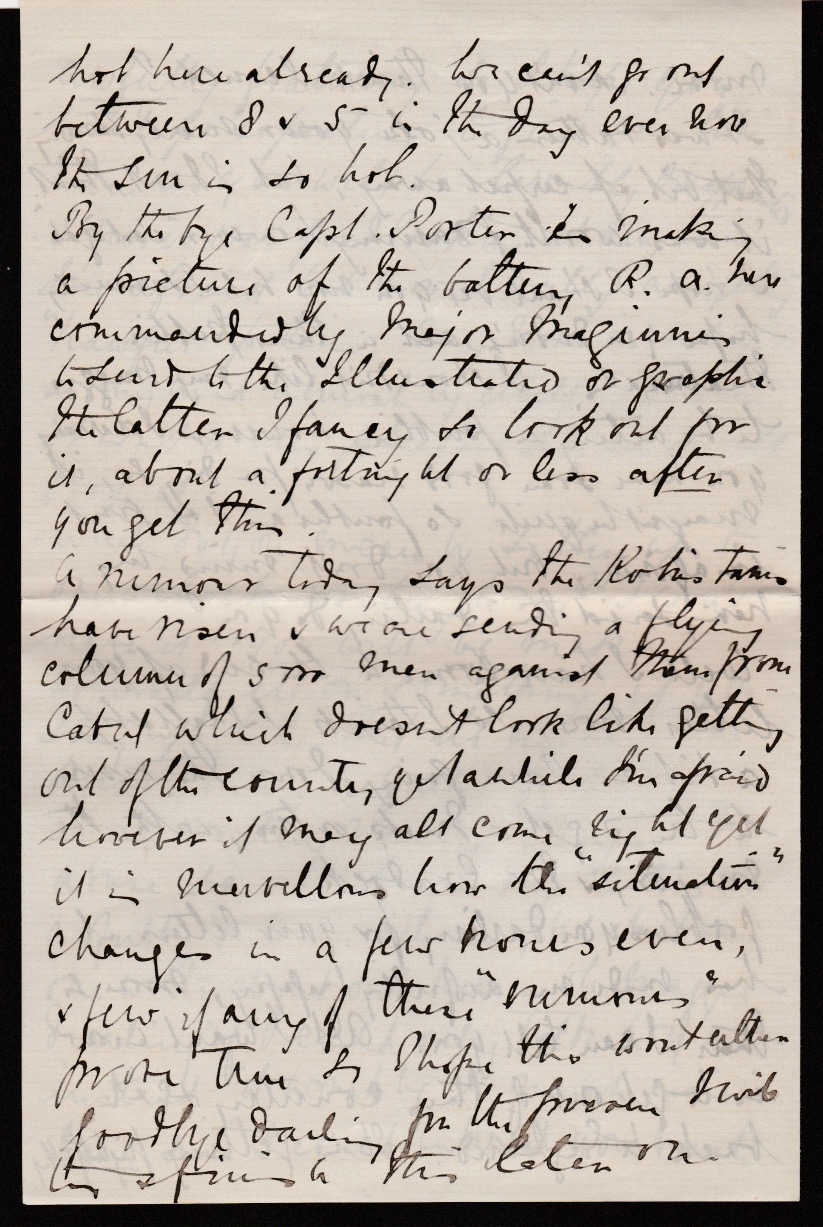 hot here already. We can't go out
between 8 & 5 in the day even now
the sun is so hot.
By the bye Capt. Porter is making
a picture of the battery R. A. here
commanded by Major Maginnis
to send to the Illustrated or graphic
the latter I fancy so look out for
it, about a fortnight or less after
you get this.
A rumour today says the Kohistanis
have risen & we are sending a flying
column of 5000 men against them from
Cabul which doesn't look like getting
out of the country yet awhile I'm afraid
however it may all come right yet
it is marvellous how the "situation"
changes in a few hours even,
& few if any of these "rumours"
prove true so I hope this wont either
Goodbye darling for the present I will
try & finish this later on.